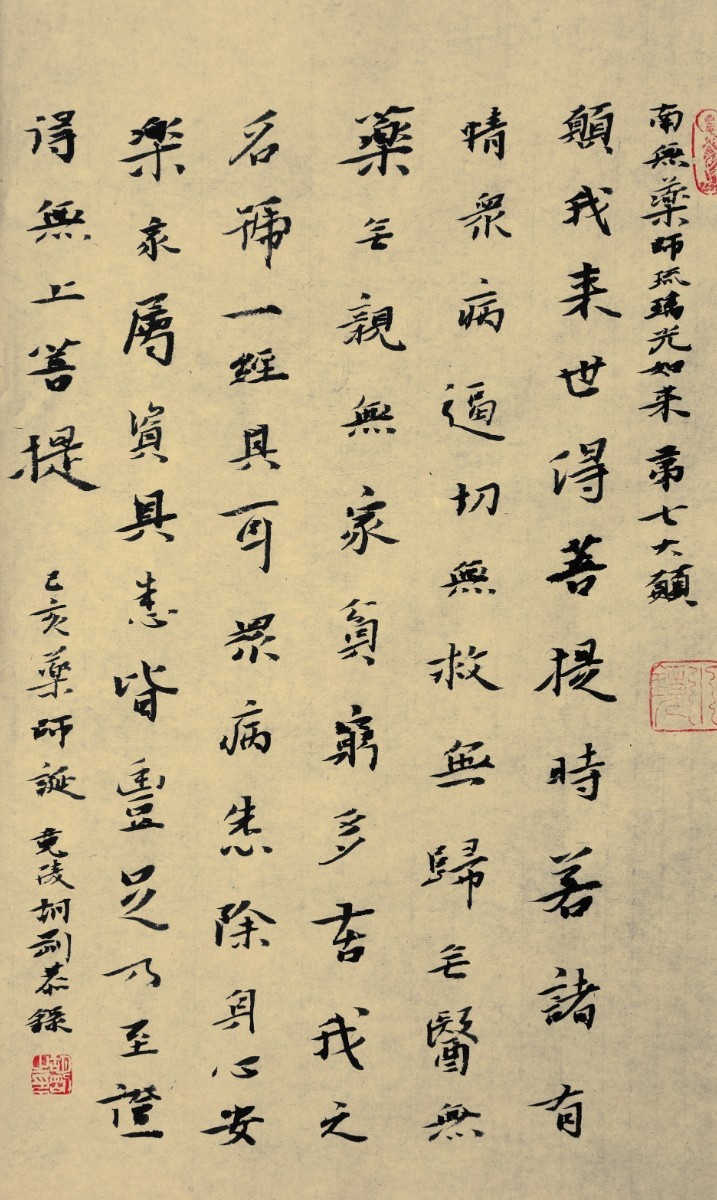 南無藥師琉璃光如来 第七大願
願我来世得菩提時若諸有
情衆病逼切無救無歸无醫無
藥无親無家貧窮多苦我之
名號一經其耳衆病悉除身心安
楽家属資具悉皆豐足乃至證
得無上菩提 己亥藥師誕 竟陵恭録